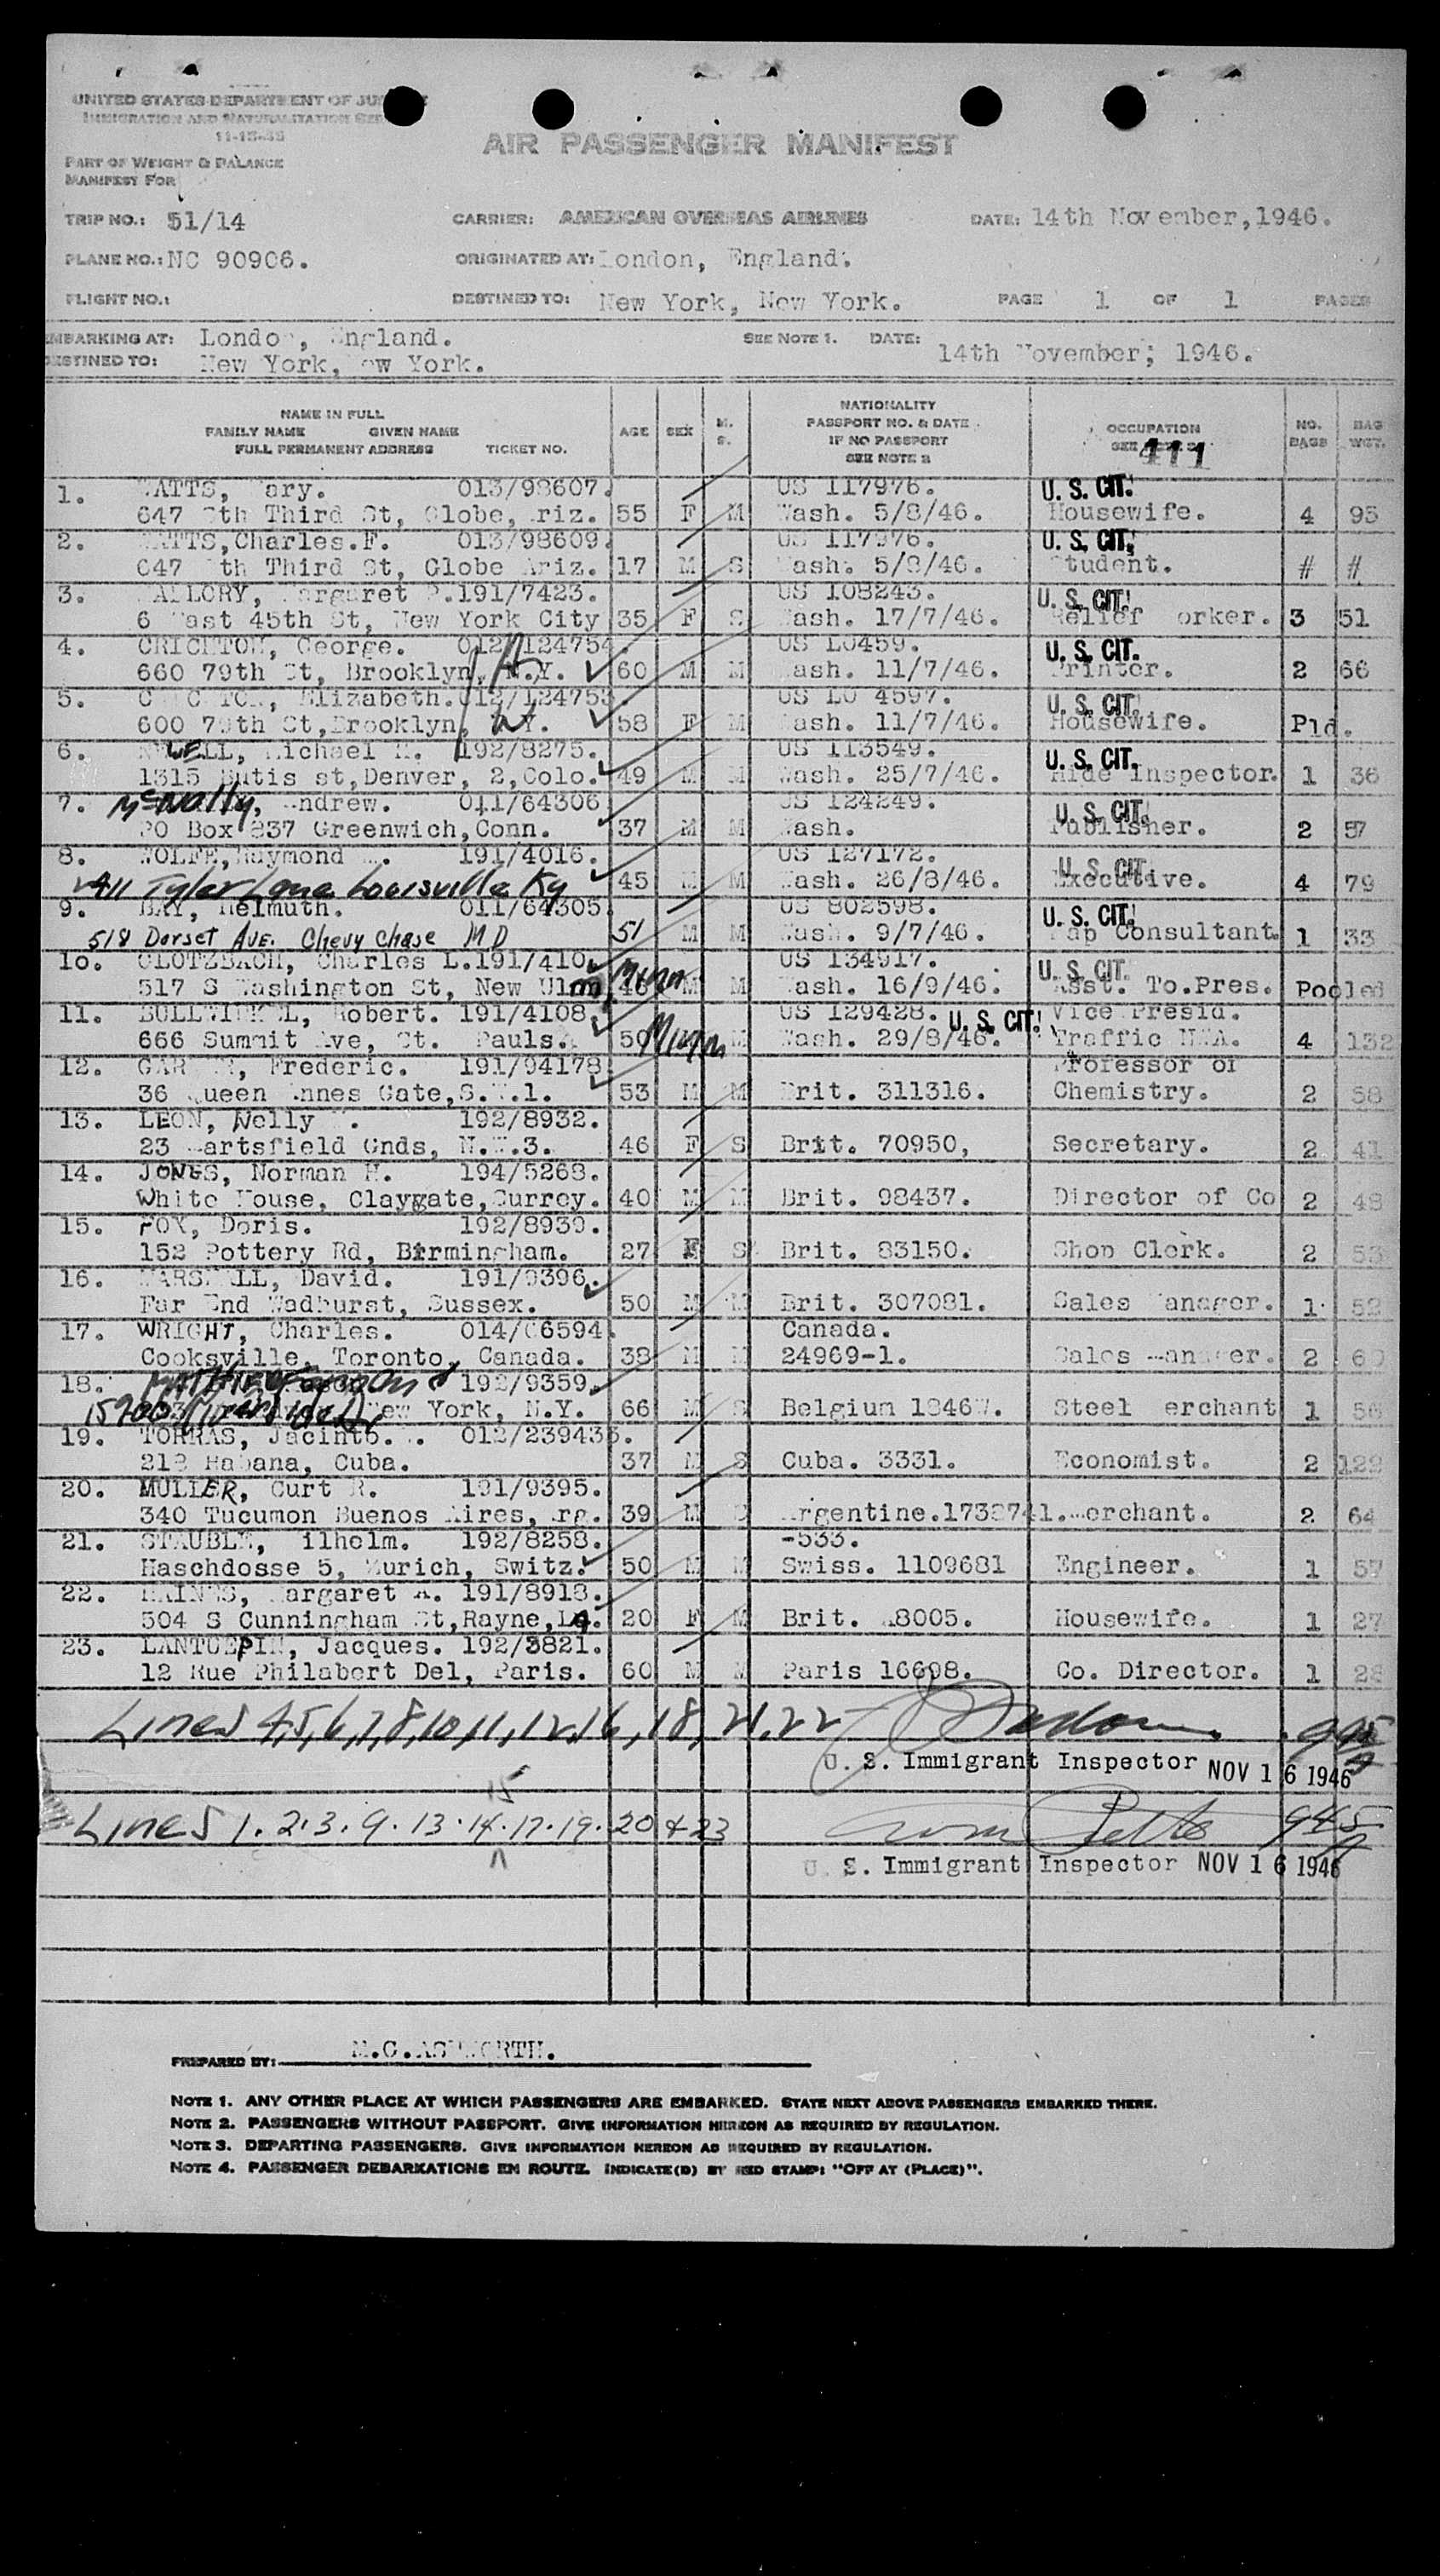 UNITED STATES DEPARTMENT OF
IMMIGRATION AND NATURALIZATION
11-15-45
AIR PASSENGER MANIFEST
PART OF WEIGHT & BALANCE
MANIFEST FOR
TRIP NO.: 51/14 CARRIER: AMERICAN OVERSEAS AIRLINES DATE: 14th November, 1946.
PLANE NO.: NC 90906. ORIGINATED AT: London, England.
FLIGHT NO.: DESTINED TO: New York, New York. PAGE 1 OF 1 PAGES
EMBARKING AT: London, England. SEE NOTE 1. DATE:
DESTINED TO: New York, New York. 14th November; 1946.
NAME IN FULL
FAMILY NAME GIVEN NAME
FULL PERMANENT ADDRESS TICKET NO. AGE SEX M. S. NATIONALITY PASSPORT NO. & DATE IF NO PASSPORT SEE NOTE 2 OCCUPATION NO. BAGS BAG WGT.
411
1. WATTS, Mary. 013/98607. US 117976. U. S. CIT.
647 Third St, Globe, Ariz. 55 F M Wash. 5/8/46. Housewife. 4 95
2. WATTS, Charles.F. 013/98609. US 117976. U. S. CIT.
647 Third St, Globe Ariz. 17 M S Wash. 5/8/46. Student. # #
3. MALLORY, Margaret 191/7423. US 108243. U. S. CIT.
6 East 45th St, New York City 35 F S Wash. 17/7/46. Relief Worker. 3 51
4. CRICHTON, George. 012/124754. US U. S. CIT.
660 79th St, Brooklyn, N.Y. 60 M M Wash. 11/7/46. Printer. 2 66
5. Elizabeth. 012/124753. US 4597. U. S. CIT.
600 79th St, Brooklyn, N.Y. 58 F M Wash. 11/7/46. Housewife. Pld.
6. Michael 192/8275. US 113549. U. S. CIT.
1315 st, Denver, 2, Colo. 49 M M Wash. 25/7/46. Hide Inspector. 1 36
7. McNally, Andrew. 011/64306 US 124249. U. S. CIT.
PO Box 837 Greenwich, Conn. 37 M M Wash. Publisher. 2 57
8. WOLFE, Raymond 191/4016. US 127172. U. S. CIT.
Tyler Lane Louisville Ky 45 M M Wash. 26/8/46. Executive. 4 79
9. BAY, Helmuth. 011/64305. US 802598. U. S. CIT.
518 Dorset Ave. Chevy Chase MD 51 M M Wash. 9/7/46. Map Consultant. 1 33
10. GLOTZBACH, Charles L. 191/410 US 134917. U. S. CIT.
517 S Washington St, New Ulm, Minn M M Wash. 16/9/46. Asst. To.Pres. Pooled
11. Robert. 191/4108. US 129428. U. S. CIT. Vice Presid.
666 Summit Ave, St. Pauls. Minn 50 M Wash. 29/8/46. Traffic 4 132
12. Frederic. 191/94178 Professor of
36 Queen Annes Gate, S.W.1. 53 M M Brit. 311316. Chemistry. 2 58
13. LEON, Nelly 192/8932.
23 Gnds, N.W.3. 46 F S Brit. 70950, Secretary. 2 41
14. JONES, Norman H. 194/5268.
White House, Claygate, Surrey. 40 M M Brit. 98437. Director of Co 2 48
15. FOX, Doris. 192/8939.
152 Pottery Rd, Birmingham. 27 F S Brit. 83150. Shop Clerk. 2 53
16. MARSHALL, David. 191/9396.
Far End Wadhurst, Sussex. 50 M M Brit. 307081. Sales Manager. 1 52
17. WRIGHT, Charles. 014/06594. Canada.
Cooksville, Toronto, Canada. 38 M M 24969-1. Sales Manager. 2 60
18. 192/9359.
New York, N.Y. 66 M S Belgium 1846 Steel Merchant 1 56
19. TORRAS, Jacinto. 012/239433.
218 Habana, Cuba. 37 M S Cuba. 3331. Economist. 2 122
20. MULLER, Curt R. 191/9395.
340 Tucumon Buenos Aires, Arg. 39 M Argentine.1738741. Merchant. 2 64
21. Wilhelm. 192/8258. -533.
Haschdosse 5, Zurich, Switz. 50 M M Swiss. 1109681 Engineer. 1 57
22. Margaret A. 191/8918.
504 S Cunningham St, Rayne, LA. 20 F M Brit. 8005. Housewife. 1 27
23. Jacques. 192/8821.
12 Rue Philabert Del, Paris. 60 M M Paris 16698. Co. Director. 1 28
Lines 4,5,6,7,8,10,11,12,16,18,21,22
U. S. Immigrant Inspector NOV 16 1946
15
Lines 1.2.3.9.13.14.17.19.20 & 23 945
U. S. Immigrant Inspector NOV 16 1946
PREPARED BY: M.C.ASHWORTH.
NOTE 1. ANY OTHER PLACE AT WHICH PASSENGERS ARE EMBARKED. STATE NEXT ABOVE PASSENGERS EMBARKED THERE.
NOTE 2. PASSENGERS WITHOUT PASSPORT. GIVE INFORMATION HEREON AS REQUIRED BY REGULATION.
NOTE 3. DEPARTING PASSENGERS. GIVE INFORMATION HEREON AS REQUIRED BY REGULATION.
NOTE 4. PASSENGER DEBARKATIONS EN ROUTE. INDICATE(D) BY RED STAMP: "OFF AT (PLACE)".